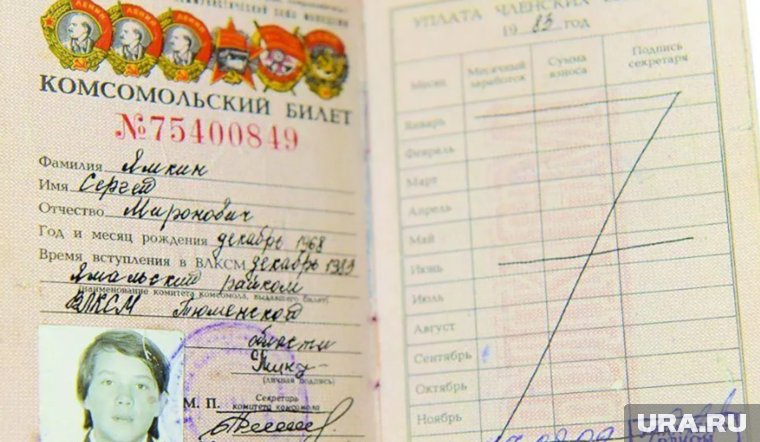 КОМСОМОЛЬСКИЙ БИЛЕТ
№75400849
Фамилия Ямкин
Имя Сергей
Отчество Миронович
Год и месяц рождения декабрь 1968
Время вступления в ВЛКСМ декабрь 1983
Ямальский райком
(наименование комитета комсомола, выдавшего билет)
ВЛКСМ Тюменской
области
(личная подпись)
Секретарь
М. П. комитета комсомола
УПЛАТА ЧЛЕНСКИХ
1983 год
Месяц
Месячный заработок
Сумма взноса
Подпись секретаря
Январь
Февраль
Март
Апрель
Май
Июнь
Июль
Август
Сентябрь
Октябрь
Ноябрь
URA.RU